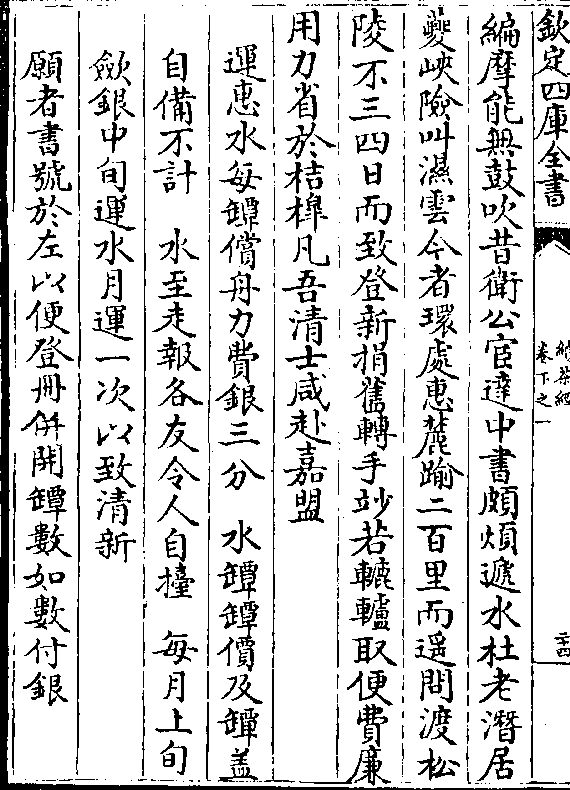 欽定四庫全書
續茶經
卷下之一
二十四
編摩能無鼓吹昔衛公宦達中書頗煩遞水杜老潛居
夔峽險叫濕雲今者環處惠麓踰二百里而遥問渡松
陵不三四日而致登新捐舊轉手妙若轆轤取便費廉
用力省於桔槔凡吾清士咸赴嘉盟
運惠水每罈償舟力費銀三分　水罈罈價及罈盖
自備不計　水至走報各友令人自擡　每月上旬
斂銀中旬運水月運一次以致清新
願者書號於左以便登冊併開罈數如數付銀